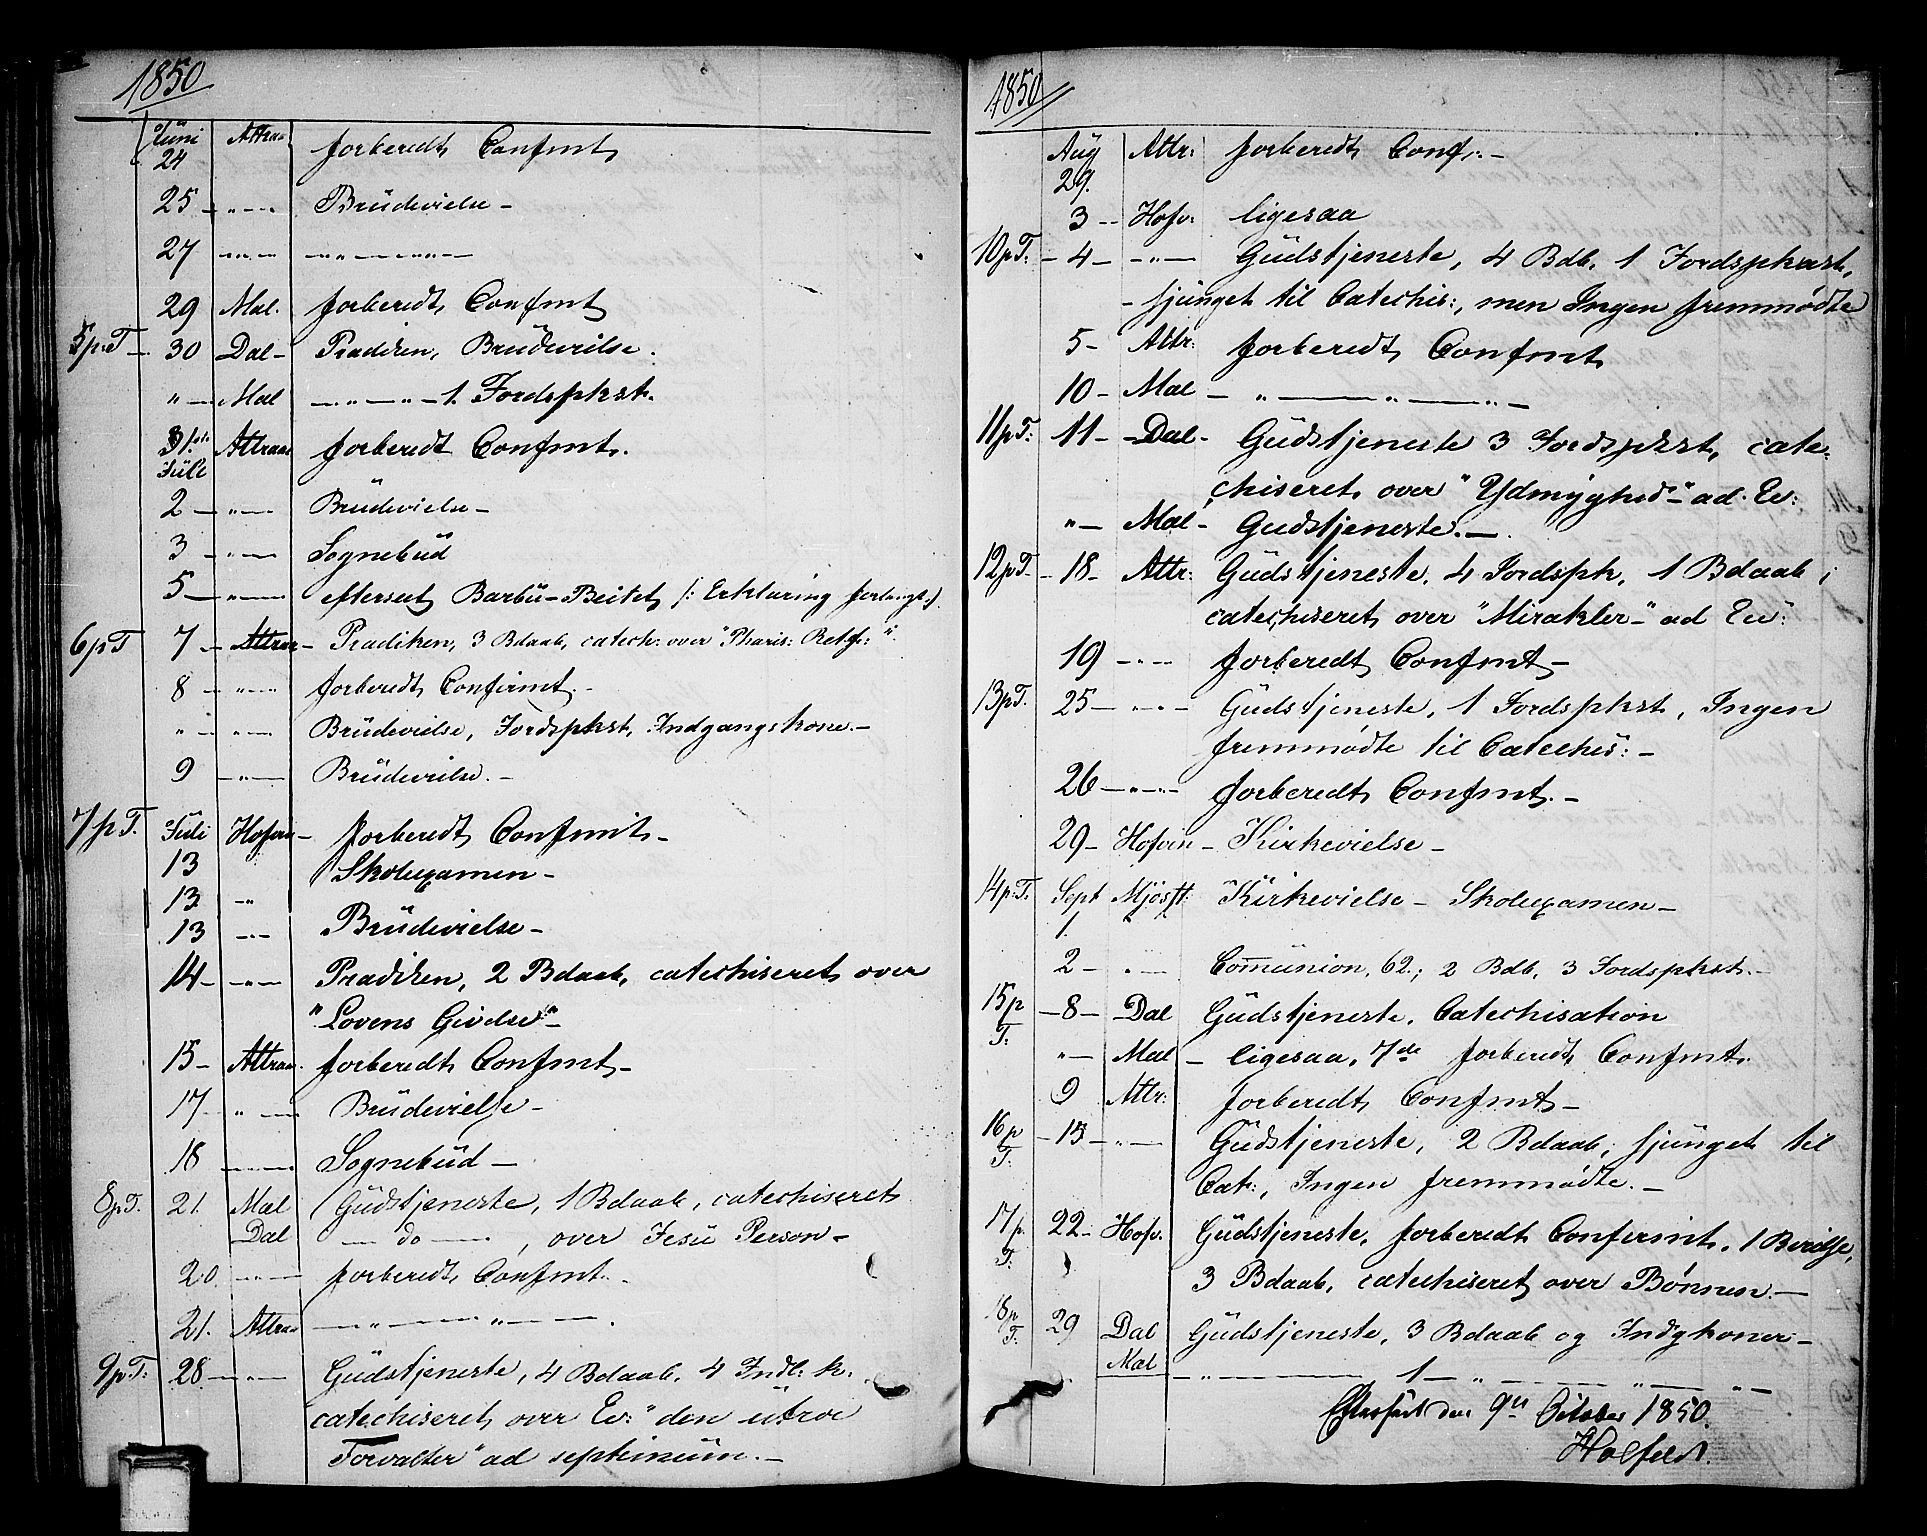 1850
Juni 24 Attraa forberedt Confmt
25 — " — Brüdevielse —
27 — " — — " — " —
29 Mæl. forberedt Confmt
5 p: T — 30 Dal — Prædiken, Brüdevielse.
" — Mæl — " — " — 1 Fordspkst.
31. Attraa forberedt Confmt.
Juli
2 — " — Brüdevielse —
3 — " — Sognebüd
5 — " — efterseet Barbü-Beitet /: Erklæring forlangt :/
6 p T 7 — Attraa — Prædiken, 3 Bdaab, catech: over "Pharis: Retf: "
8 — " — forberedt Confirmt. —
" — " — Brüdevielse, Fordspkst, Indgangskone. —
9 — " — Brüdevielse. —
7 p T. Juli 13 Hofvin — forberedt Confmt —
13 " Skolexamen —
13 — " — Brüdevielse —
14 — " — Prædiken, 2 Bdaab, catechiseret over
"Lovens Givelse" —
15 — Attraa. forberedt Confmt —
17 — " — Brüdevielse —
18 — " — Sognebüd —
8 p T. 21. Mæl Güdstjeneste, 1 Bdaab, catechiseret
Dal — do —, over Jesü Person —
20 — " — forberedt Confmt.
21. Attraa — " — " — .
9 p T: 28 — " — Güdstjeneste, 4 Bdaab. 4 Indl: k:,
catechiseret over Ev: "den ütroe
Forvalter" ad septimum. —
1850
Aüg 29. Attr: forberedt Conf: —
3 — Hofv: ligesaa
10 p T: — 4 — — " — Güdstjeneste, 4 Bdb. 1 Fordspkst,
— sjünget til Catechis:, men Ingen fremmødte
5 — Attr: forberedt Confmt
10 — Mæl — " — " — " —
11 p T: 11 — Dal — Güdstjeneste 3 Fordspkst, cate-
chiseret over "Ydmyghed" — ad Ev:
" — Mæl — Gudstjeneste. —
12 p T — 18 — Attr: Güdstjeneste, 4 Fordspk, 1 Bdaab;
catechiseret over "Mirakler —" ad Ev:
19 — " — forberedt Confmt —
13 p T. 25 — " — Güdstjeneste, 1 Fordspkst, Ingen
fremmødte til Catechis: —
26 — " — forberedt Confmt. —
29 — Hofvin — Kirkevielse —
14 p: T. Sept 1. Mjösst: Kirkevielse — Skolexamen —
2 — " — Comünion, 62.; 2 Bdb, 3 Fordspkst. —
15 p T: — 8 — Dal Güdstjeneste, Catechisation
" — Mæl — ligesaa, 7de forberedt Confmt.
9 Attr: forberedt Confmt —
16 p T: — 15 — " — Güdstjeneste, 2 Bdaab, sjünget til
Cat:, Ingen fremmødte. —
17 p. T: 22 — Hofv. Güdstjeneste, forberedt Confirmt,
3 Bdaab, catechiseret over Bønnen. —
18 p T: 29 Dal Güdstjeneste, 3 Bdaab og Indgkoner —
Mæl — " — 1 — " — " — " —
Efterseet den 9de October 1850.
Holfeldt.